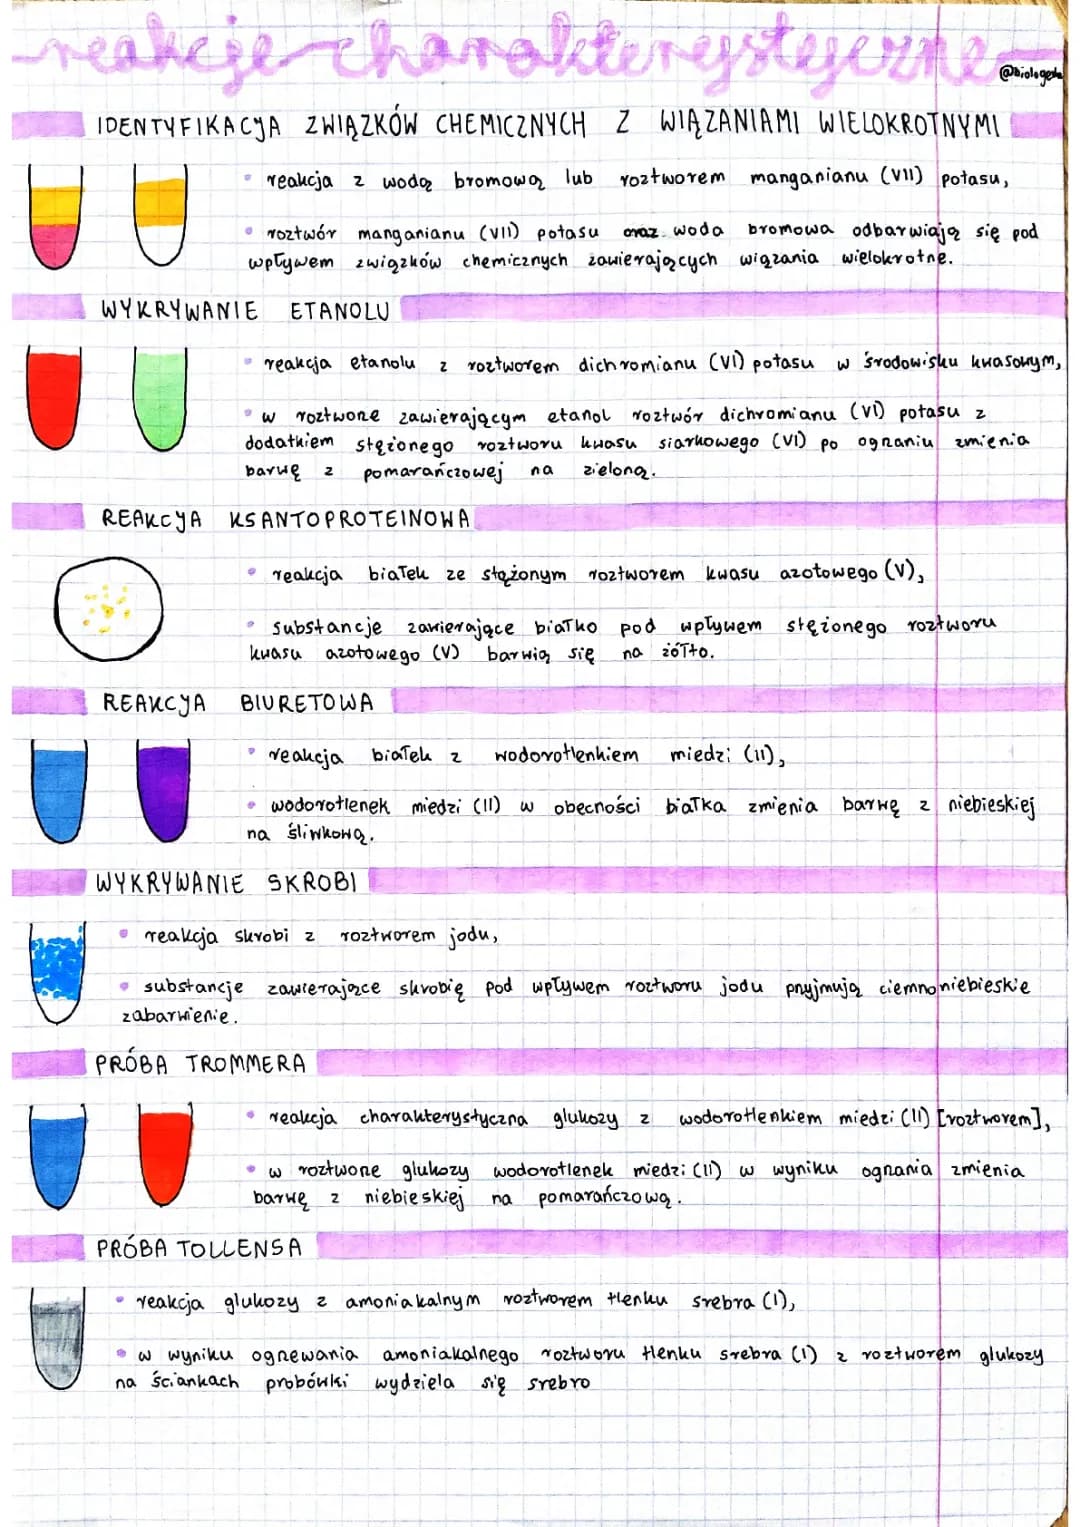 reakcje charakterystyczne
IDENTYFIKACJA ZWIĄZKÓW CHEMICZNYCH Z WIĄZANIAMI WIELOKROTNYMI
• reakcja z wodą bromową lub roztworem manganianu (VII) potasu,
• roztwór manganianu (VII) potasu oraz woda bromowa odbarwiają się pod
wpływem związków chemicznych zawierających wiązania wielokrotne.
WYKRYWANIE ETANOLU
• reakcja etanolu z roztworem dichromianu (VI) potasu w środowisku kwasowym,
• w roztworze zawierającym etanol roztwór dichromianu (VI) potasu z
dodatkiem stężonego roztworu kwasu siarkowego (VI) po ogrzaniu zmienia
barwę z pomarańczowej na zieloną.
REAKCJA KSANTOPROTEINOWA
• reakcja białek ze stężonym roztworem kwasu azotowego (V),
• substancje zawierające białko pod wpływem stężonego roztworu
kwasu azotowego (V) barwią się na żółto.
REAKCJA BIURETOWA
• reakcja białek z wodorotlenkiem miedzi (II),
• wodorotlenek miedzi (II) w obecności białka zmienia barwę z niebieskiej
na śliwkową.
WYKRYWANIE SKROBI
• reakcja skrobi z roztworem jodu,
• substancje zawierające skrobię pod wpływem roztworu jodu przyjmują ciemnoniebieskie
zabarwienie.
PRÓBA TROMMERA
• reakcja charakterystyczna glukozy z wodorotlenkiem miedzi (II) [roztworem],
• w roztworze glukozy wodorotlenek miedzi (II) w wyniku ogrzania zmienia
barwę z niebieskiej na pomarańczową.
PRÓBA TOLLENSA
• reakcja glukozy z amoniakalnym roztworem tlenku srebra (I),
• w wyniku ogrzewania amoniakalnego roztworu tlenku srebra (I) z roztworem glukozy
na ściankach probówki wydziela się srebro